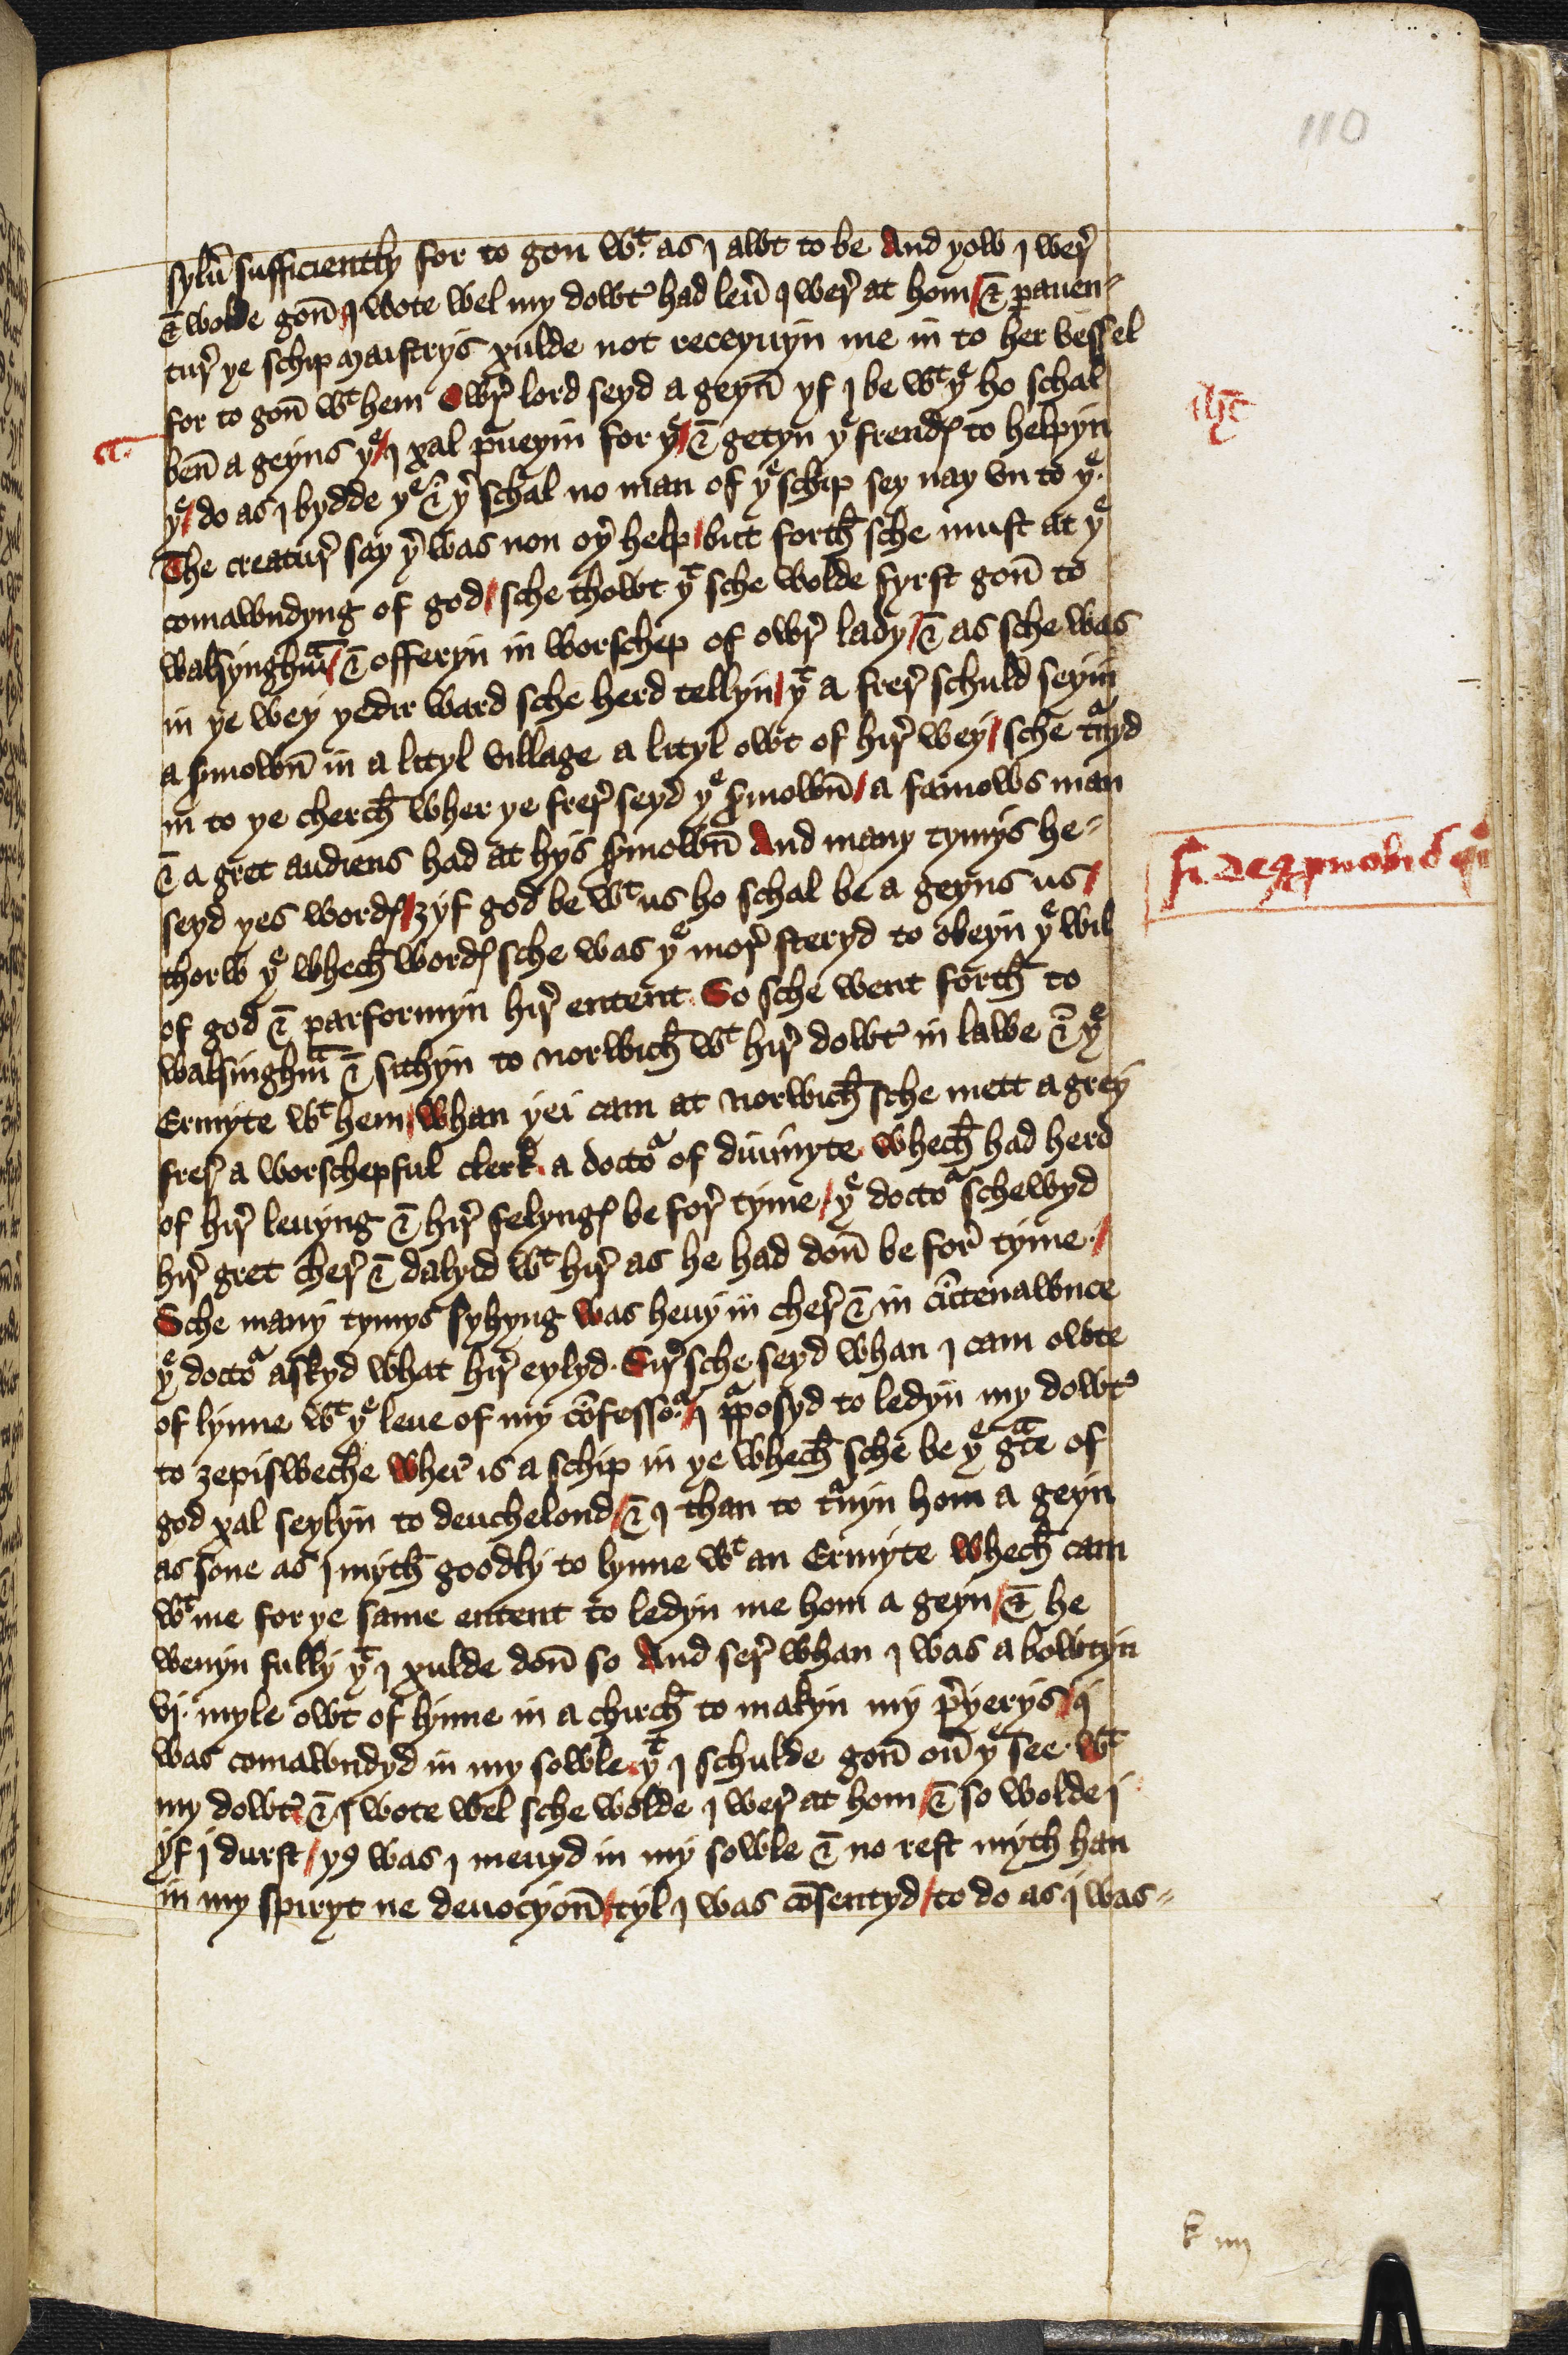 110
sylū sufficiently for to gon wt as I awt to be And yow I wer̛
& wolde gon̄ I wote wel my dowt' had leū I wer̛ at hom / & ꝑauen-
tur̛ ye schip maistrys xulde not receyuyn me in to her vessel
for to gon̄ wt hem Owr̛ lord seyd a geyn̄ yf I be wt ye ho schal
ben̄ a geyns ye / I xal ꝓueyin for ye / & getyn ye frendꝭ to helpyn
ihc̄
a.
ye / do as I bydde ye & yr schal no man of ye schip sey nay vn to ye.
The creatur̛ sey yr was non oyr help / but forth̄ sche must at ye
comawndyng of god / sche thowt yt sche wolde fyrst gon̄ to
walsynghm̄ / & offeryn in worschep of owr̛ lady / & as sche was
in ye wey yedir ward sche herd tellyn / yt a frer̛ schuld seyin
a s̄mown̄ in a lityl village a lityl owt of hir̛ wey / sche tᵃnyd
in to ye cherch̄ wher ye frer̛ seyd ye s̄mown̄ / a famows man
& a gret audiens had at hys s̄mown̄ And many tymys he-
seyd yes wordꝭ / ȝyf god be wt us ho schal be a geyns us /
si deꝰ ꝓ nobis
thorw ye whech̄ wordꝭ sche was ye mor̛ steryd to obeyn ye wil
of god & parformyn hir̛ entent. So sche went forth̄ to
walsinghm̄ & sithyn to norwich̄ wt hir̛ dowt' in lawe & ye
Ermyte wt hem / whan yei cam at norwich̄ sche mett a grey
frer̛ a worschepful clerk. a doctoᵃ of diuinyte whech̄ had herd
of hir̛ leuyng & hir̛ felyngꝭ be for̛ tyme / ye doctoᵃ schewyd
hir̛ gret cher̛ & dalyid wt hir̛ as he had don̄ be for̛ tyme. /
Sche many tymys syhyng was heuy in cher̛ & in cūtenawnce
ye doctoᵃ askyd what hir̛ eylyd. Sir̛ sche seyd whan I cam owte
of lynne wt ye leue of my cōfessoᵃ. / I ꝓposyd to ledyn my dowt'
to ȝepisweche wher̛ is a schip in ye whech̄ sche be ye gᵃce of
god xal seylyn to deuchelond / & I than to tᵃnyn hom a geyn
as sone as I myth̄ goodly to lynne wt an Ermyte whech̄ cam
wt me for ye same entent to ledyn me hom a geyn / & he
wenyn fully yt I xulde don̄ so And ser̛ whan I was a bowtyn
vj. myle owt of lynne in a chirch̄ to makyn my p̛yerys / I
was comawndyd in my sowle. yt I schulde gon̄ oū ye see. wt
my dowt' & I wote wel sche wolde I wer̛ at hom / & so wolde I
yf I durst / yꝰ was I meuyd in my sowle & no rest myth han
in my spiryt ne deuocyon̄ / tyl I was cōsentyd / to do as I was-
k iiij